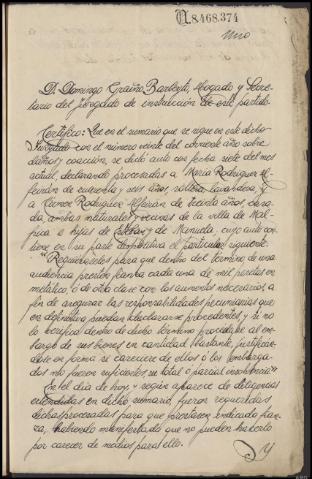 N.8.468.374
Uno
D. Domingo Barbeyti, Abogado y Secre-
tario del Juzgado de instrucción de este partido.
Certifico: Que en el sumario que se sigue en este dicho
Juzgado con el número veinte del corriente año sobre
daños y coacción, se dictó auto con fecha siete del mes
actual, declarando procesadas a María Rodriguez
de cuarenta y seis años, soltera, labradora, y
a Leonor Rodriguez de treinta años, casa-
da, ambas naturales y vecinas de la villa de Mal-
pica e hijas de Esteban y de Manuela, cuyo auto con-
tiene en su parte dispositiva el particular siguiente.
"Requiéraseles para que dentro del término de una
audiencia presten fianza cada una de mil pesetas en
metálico, ó de otra clase con los aumentos necesarios a
fin de asegurar las responsabilidades pecuniarias que
en definitiva puedan declararse procedentes y si no
lo verifica dentro de dicho término procédase al em-
bargo de sus bienes en cantidad bastante, justificán-
dose en forma si carecieren de ellos ó los embarga-
dos no fueren suficientes su total ó parcial insolvencia"
En el dia de hoy, y según aparece de diligencias
extendidas en dicho sumario, fueron requeridas
dichas procesadas para que prestasen indicada fian-
za, habiendo manifestado que no pueden hacerlo
por carecer de medios para ello.
Y